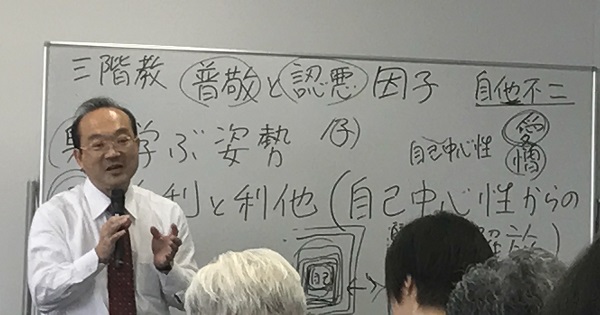 三階教 普敬と認悪 因子 自他不二
学ぶ姿勢
自己中心性 愛 憎
利と利他(自己中心性からの
放)